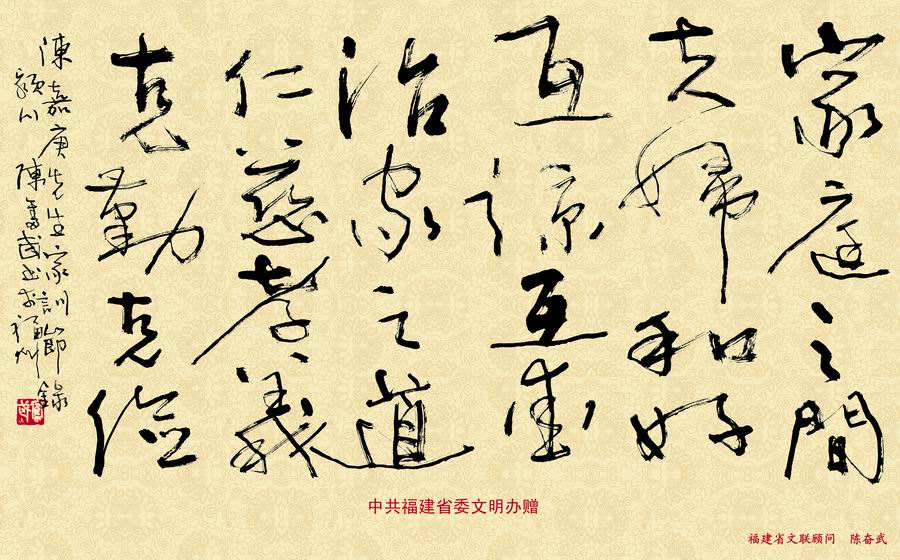 家庭之間
夫婦和好
互諒互愛
治家之道
仁慈孝義
克勤克儉
陳嘉庚先生家訓節錄
潁川 陳奮武書於福州
中共福建省委文明办赠
福建省文联顾问 陈奋武